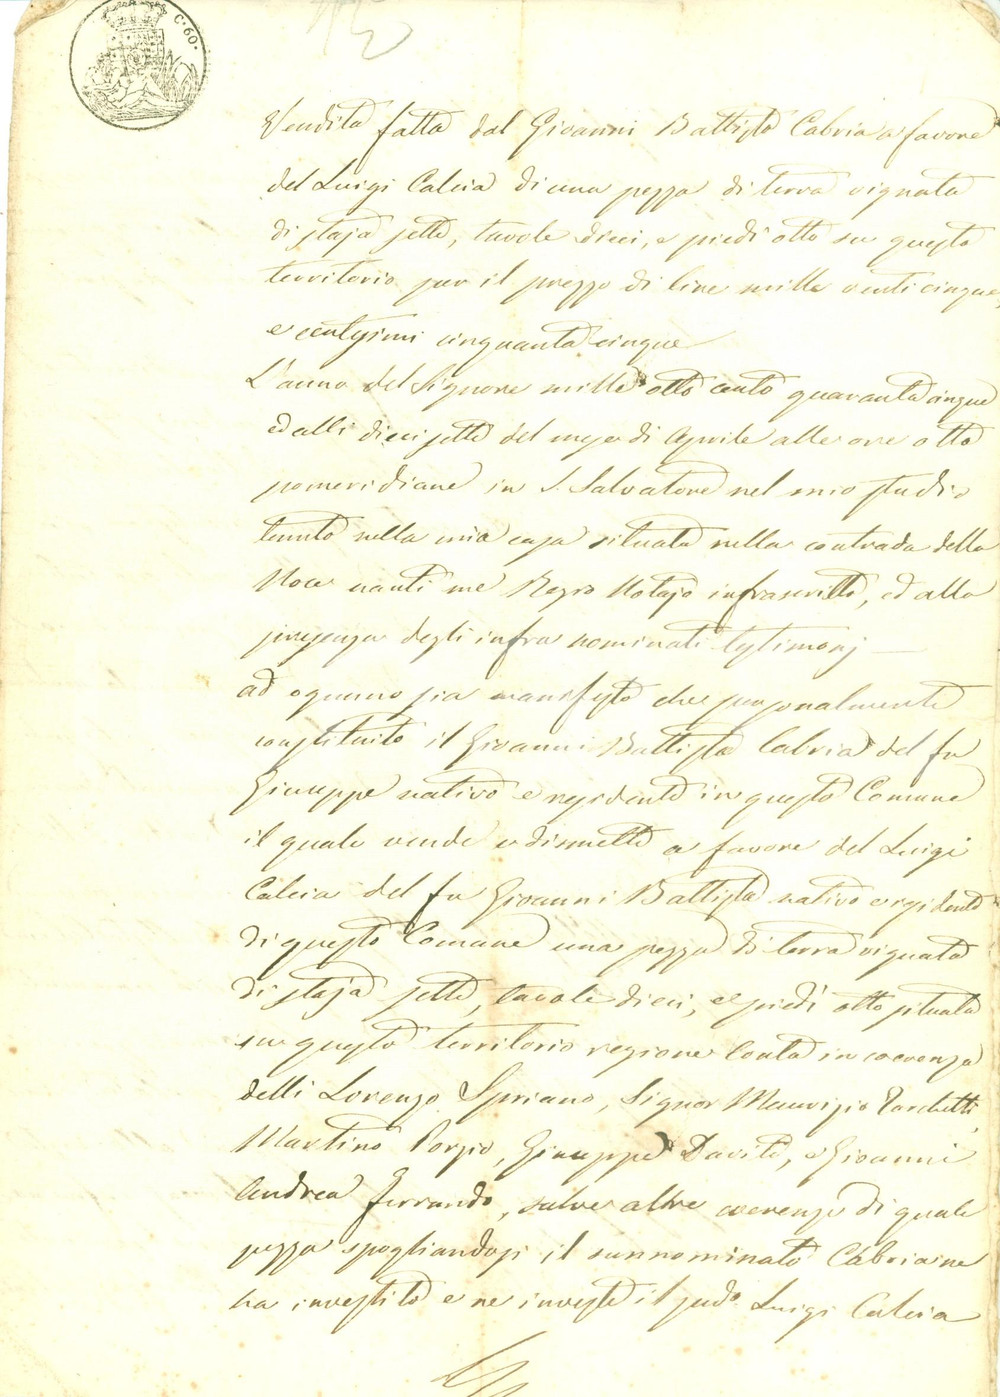 C. 60.
Vendita fatta dal Giovanni Battista Cabria a favore
del Luigi Calcia di una pezza di terra vignata
di staja sette, tavole dieci, e piedi otto su questo
territorio per il prezzo di lire mille venticinque,
e centesimi cinquantacinque
L'anno del Signore mille otto cento quarantacinque
ed alli diecisette del mese di Aprile alle ore otto
pomeridiane in S. Salvatore nel mio studio
tenuto nella mia casa situata nella contrada della
nanti me Regio Notajo infrascritto, ed alla
presenza degli infra nominati testimonj
ad ognuno sia manifesto che personalmente
constituito il Giovanni Battista Cabria del fu
Giuseppe nativo e residente in questo Comune
il quale vende e dismette a favore del Luigi
Calcia del fu Giovanni Battista nativo e residente
di questo Comune una pezza di terra vignata
di staja sette, tavole dieci, e piedi otto situata
su questo territorio regione in coerenza
delli Lorenzo Spriano, Signor Maurizio Tarchetti,
Martino Porzio, Giuseppe Davite, e Giovanni
Andrea Ferrando, salve altre coerenze di quale
pezza spogliandosi il sunnominato Cabria ne
ha investito e ne investe il sudo Luigi Calcia